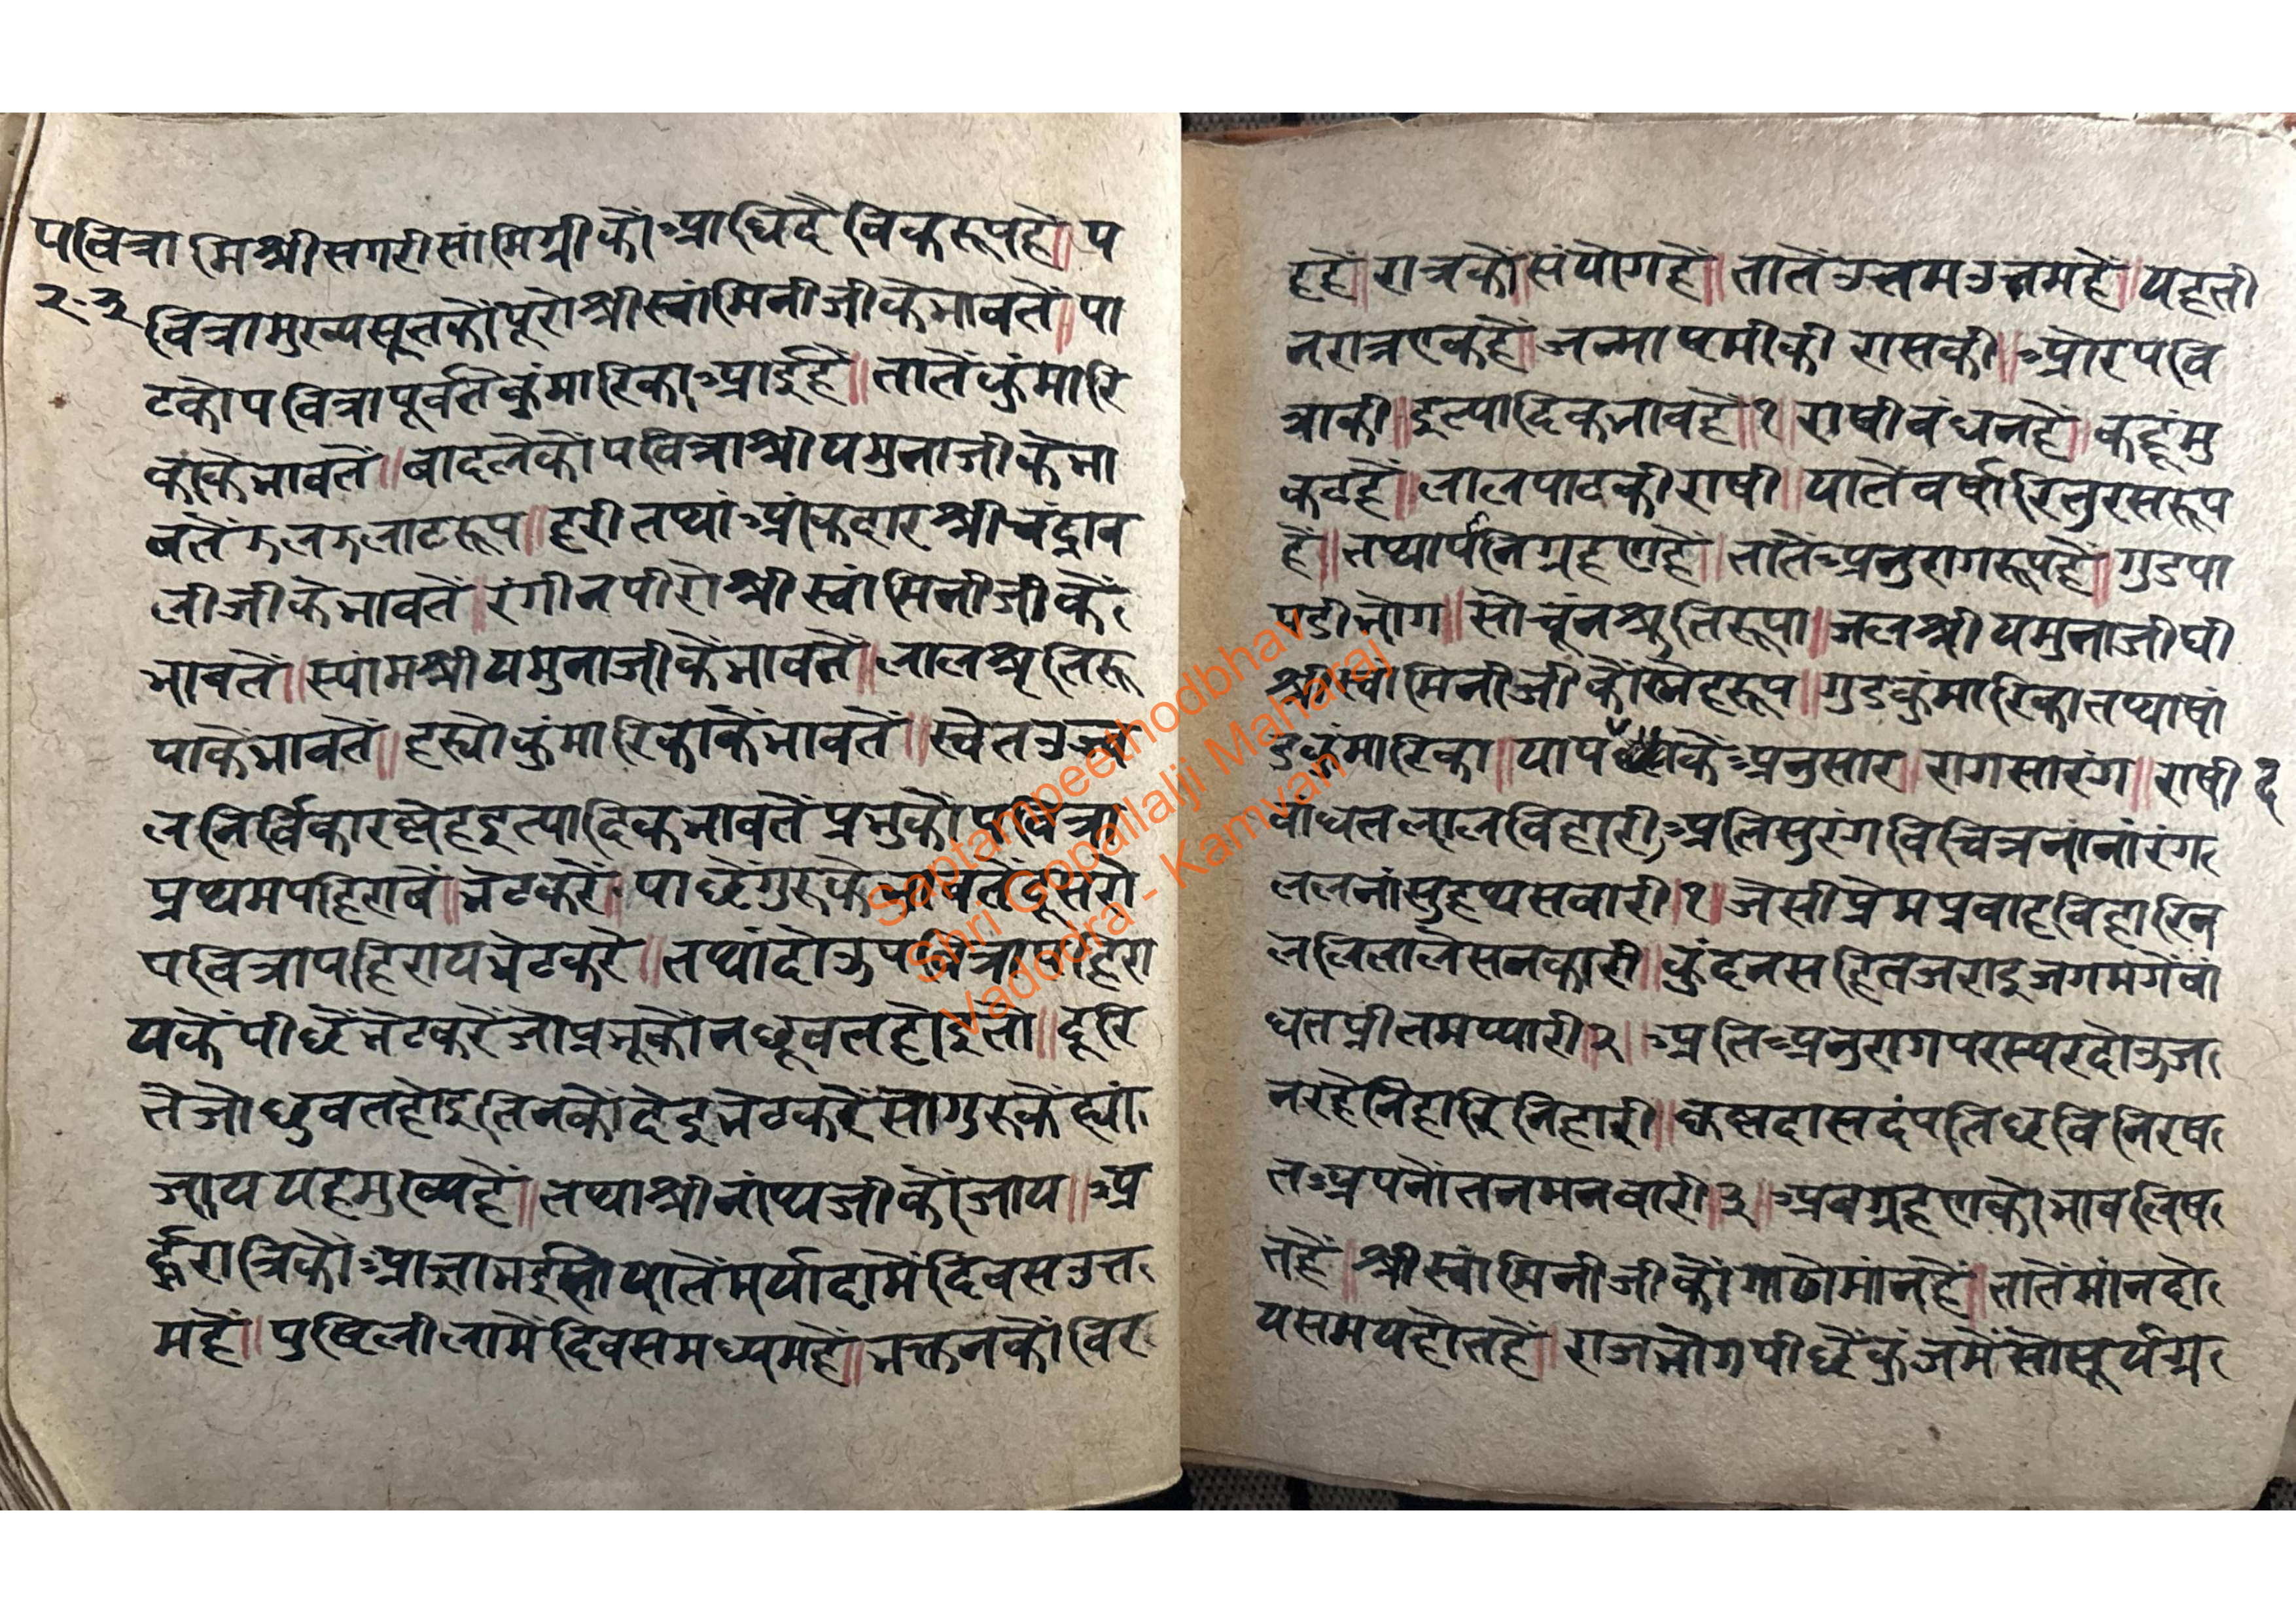 पवित्रा मिश्रीसगरीसांमिग्रीकौंआधिदैविकरूपहै॥प
२.३
वित्रामुख्यसूतकौंपूरोश्रीस्वांमिनीजीकेभावतें॥पा
टकोपवित्रापूर्वतैकुंमारिकाआईहै॥तातेंकुंमारि
कांकेभावतें॥बादलेकौंपवित्राश्रीयमुनाजीकेभा
वतेंझलझलाटरूप॥हरीतथांआंकदारश्रीचंद्राव
लीजीकेभावतें॥रंगीनपीरोश्रीस्वांमिनीजीकें
भावतें॥स्यांमश्रीयमुनाजीकेंभावतें॥लालश्रुतिरू
पाकेंभावतें॥हस्योकुंमारिकाकेंभावतें॥स्वेतउज्व
लनिर्विकारस्नेहइत्यादिकभावतेंप्रभुकौंपवित्रा
प्रथमपहिरावें॥भेटकरें॥पाछेंगुरूकेभावतेंदूसरो
पवित्रापहिरायभेटकरे॥तथांदोऊपवित्रापहिरा
यकेंपीछेंभेटकरेंजोप्रभूकौंनछूवतहोइतो॥दूरि
तेजोछुवतहोइतिनकौंदेइभेटकरेंसोगुरूकेंह्यां
जाययहमुख्यहै॥तथाश्रीनांथजीकौंजाय॥अ
र्द्धरात्रिकौंआज्ञाभईसोयातेंमर्यादामेंदिवसउत्त
महें॥पुष्टिलीलामेंदिवसमध्यमहें॥भक्तनकौंविर
हहें॥रात्रकौंसंयोगहें॥तातेंउत्तमउत्तमहें॥यहती
नरात्रएकहै॥जन्माष्टमीकी रासकी॥औरपवि
त्राकी॥इत्यादिकभावहै॥१॥राषीबंधनहै॥कहूंमु
कटहै॥लालपाटकीराषी॥यातेंवर्षारितुरसरूप
हें॥तथापांनिग्रहणहै॥तातेंअनुरागरूपहै॥गुडपा
पडीभोग॥सोचूंनश्रुतिरूपा॥जलश्रीयमुनाजीघी
श्रीस्वांमिनीजीकौंस्नेहरूप॥गुडकुंमारिकातथाषां
डकुंमारिका॥पापकेंअनुसार॥रागसारंग॥राषी द
बांधतलालविहारीअतिसुरंगविचित्रनांनांरंग
ललनांसुहथसवारी॥१॥जैसीप्रेमप्रवाहविहारिन
लेलिलालेसनकारी॥कुंदनसहितजराइजगमगेंबां
धतप्रीतमप्यारी॥२॥अतिअनुरागपरस्परदोऊज
नरहेनिहारिनिहारी॥कृष्णदासदंपतिछविनिरष
तअपनोंतनमनवारी॥३॥अबग्रहणकोभावलिष
तहें॥श्रीस्वांमिनीजीकौंगाढोमांनहें॥तातेंमांनदो
यसमयहोतहें॥राजभोगपीछेंकुंजमेंसोसूर्यग्र
Saptampeethodbhav
Shri Gopallalji Maharaj
Vadodra - Kamvan